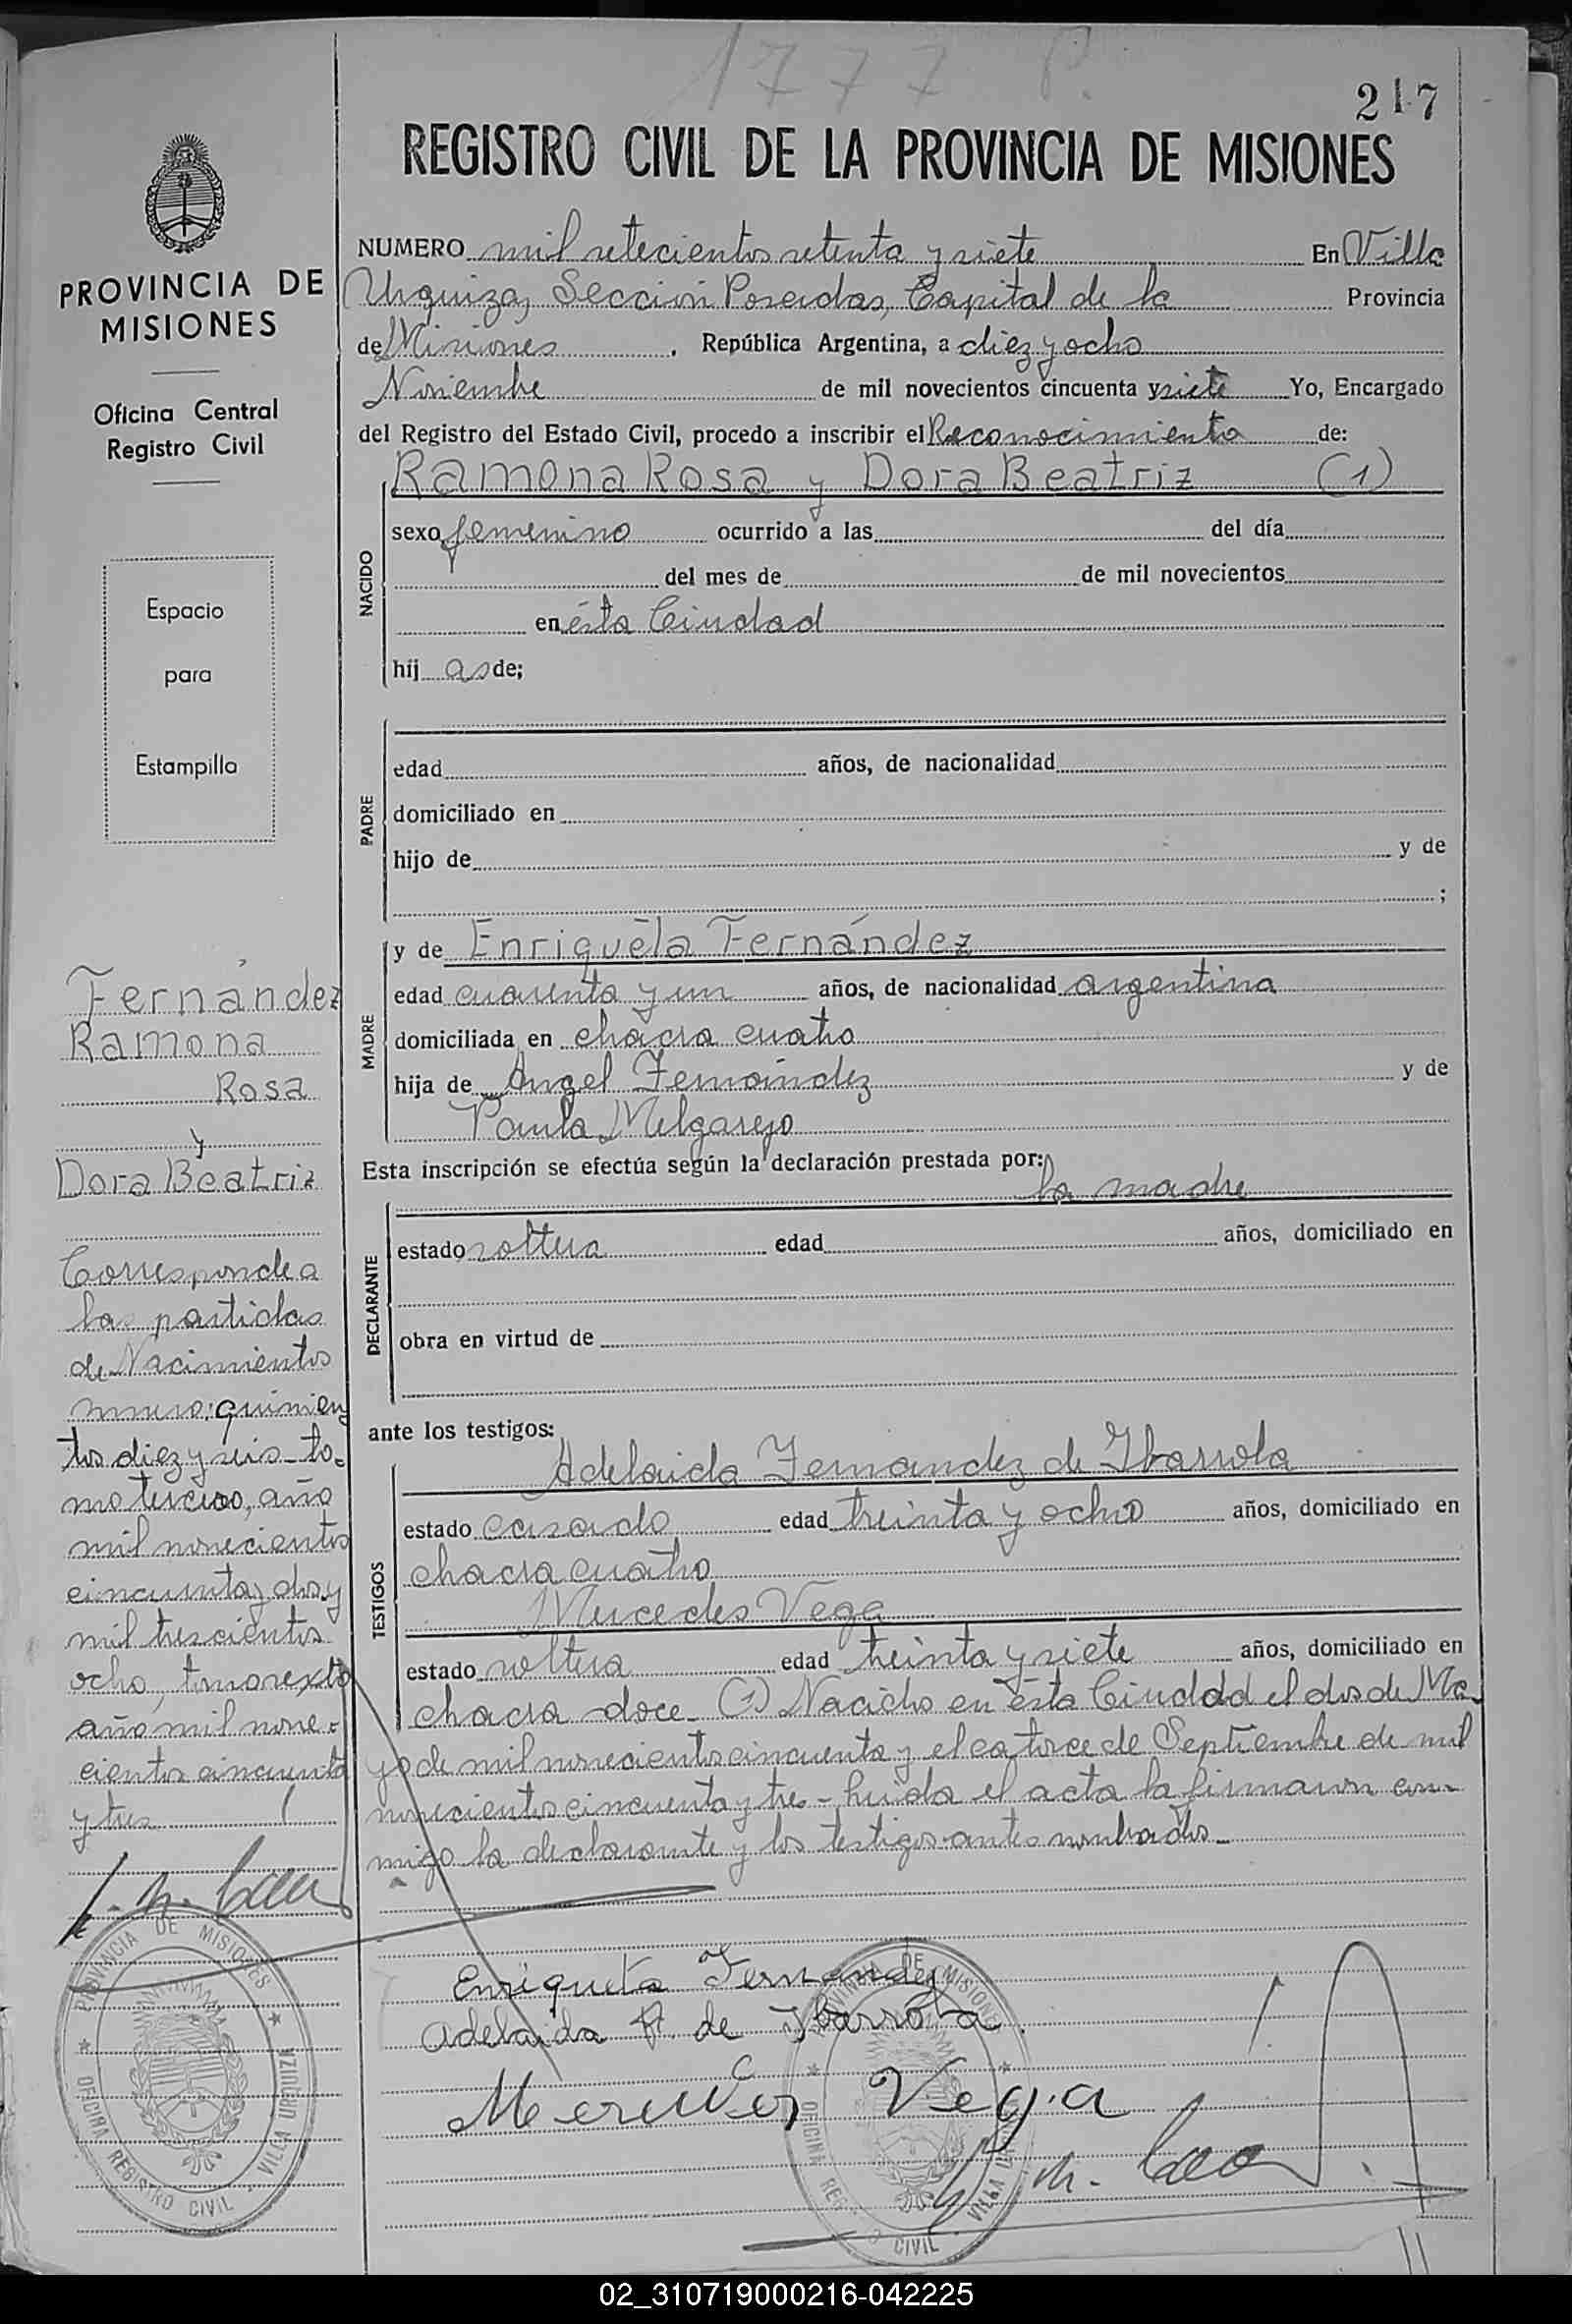 1777 P.
217
REGISTRO CIVIL DE LA PROVINCIA DE MISIONES
PROVINCIA DE
MISIONES
Oficina Central
Registro Civil
Espacio
para
Estampilla
Fernández
Ramona
Rosa
y
Dora Beatriz
Corresponde a
las partidas
de Nacimientos
numero: quinien
tos diez y seis - to-
mo tercero, año
mil novecientos
cincuenta y dos y
mil trescientos
ocho, tomo sexto
año mil nove-
cientos cincuenta
y tres
PROVINCIA DE MISIONES
OFICINA REGISTRO CIVIL - VILLA URQUIZA
NUMERO mil setecientos setenta y siete En Villa
Urquiza, Sección Posadas, Capital de la Provincia
de Misiones, República Argentina, a diez y ocho
Noviembre de mil novecientos cincuenta y siete Yo, Encargado
del Registro del Estado Civil, procedo a inscribir el Reconocimiento de:
Ramona Rosa y Dora Beatriz (1)
NACIDO
sexo femenino ocurrido a las del día
del mes de de mil novecientos
en ésta Ciudad
hij as de;
PADRE
edad años, de nacionalidad
domiciliado en
hijo de y de
;
MADRE
y de Enriquéta Fernández
edad cuarenta y un años, de nacionalidad argentina
domiciliada en chacra cuatro
hija de Angel Fernández y de
Paula Melgarejo
Esta inscripción se efectúa según la declaración prestada por:
la madre
DECLARANTE
estado soltera edad años, domiciliado en
obra en virtud de
ante los testigos:
Adelaida Fernandez de Ibarrola
TESTIGOS
estado casado edad treinta y ocho años, domiciliado en
chacra cuatro
Mercedes Vega
estado soltera edad treinta y siete años, domiciliado en
chacra doce - (1) Nacidas en ésta Ciudad el dos de Ma-
yo de mil novecientos cincuenta y el catorce de Septiembre de mil
novecientos cincuenta y tres - leída el acta la firmaron con-
migo la declarante y los testigos antes nombrados -
Enriqueta Fernandez
Adelaida F. de Ibarrola
Mercedes Vega
PROVINCIA DE MISIONES
OFICINA REGISTRO CIVIL - VILLA URQUIZA
02_310719000216-042225